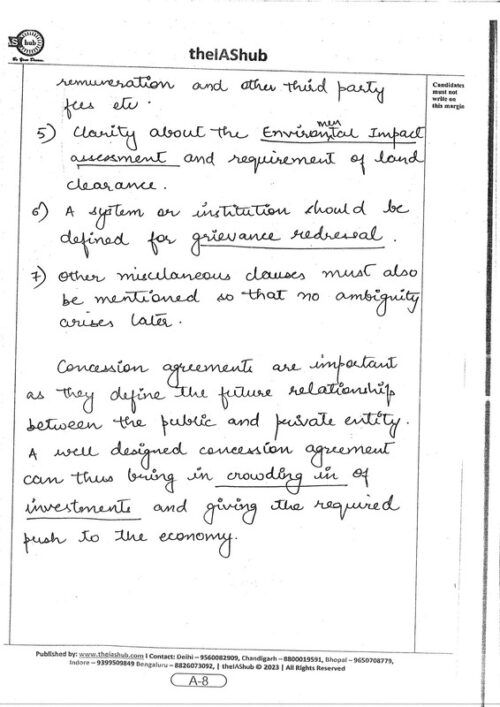 hub
theIAShub
Candidates
must not
write on
this margin
remuneration and other third party
fees etc.
5) Clarity about the Environmental Impact
assessment and requirement of land
clearance.
6) A system or institution should be
defined for grievance redressal.
7) Other miscelaneous clauses must also
be mentioned so that no ambiguity
arises later.
Concession agreements are important
as they define the future relationship
between the public and private entity.
A well designed concession agreement
can thus bring in crowding in of
investments and giving the required
push to the economy.
Published by: www.theiashub.com I Contact: Delhi – 9560082909, Chandigarh – 8800019591, Bhopal – 9650708779,
Indore – 9399509849 Bengaluru – 8826073092, | theIAShub © 2023 | All Rights Reserved
A-8